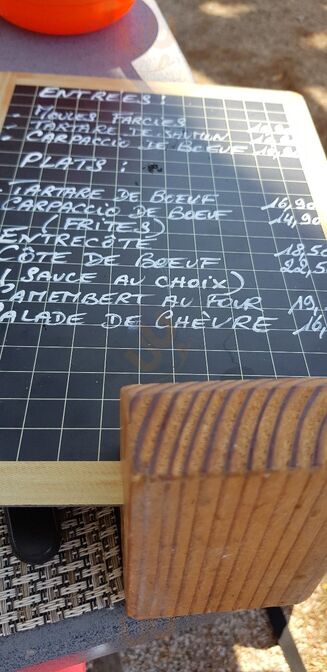 ENTREES :
- MOULES FARCIES
- TARTARE DE SAUMON
- CARPACCIO DE BOEUF
PLATS :
TARTARE DE BOEUF 16,90
CARPACCIO DE BOEUF 14,90
(FRITES)
ENTRECÔTE 18,50
CÔTE DE BOEUF 22,5
SAUCE AU CHOIX)
CAMEMBERT AU FOUR 19,
ALADE DE CHÈVRE 16,